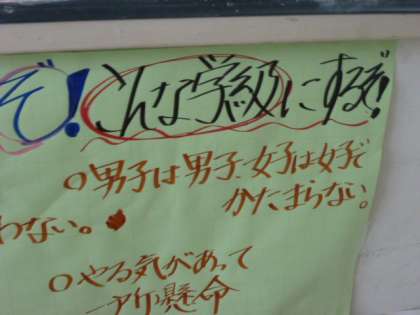 ぞ!こんな学級にするぞ!
○男子は男子、女子は女子で
かたまらない。
わない。
○やる気があって
一所懸命